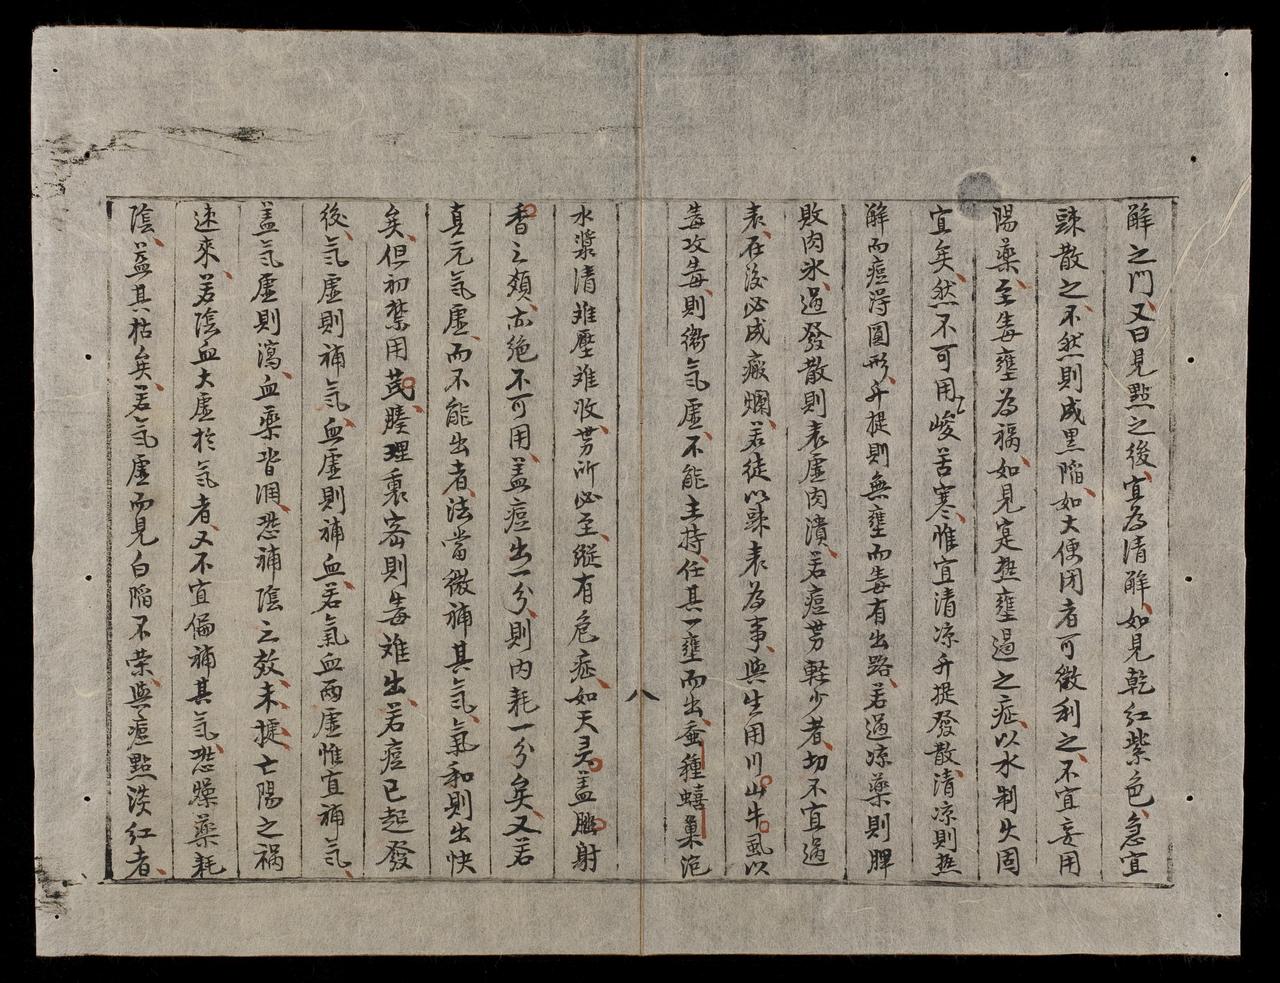 解之門又曰見點之後宜為清解如見乾紅紫色急宜
踈散之不然則成黒陷如大便閉者可微利之不宜妄用
陽藥至毒壅為禍如見寔熱壅遏之症以水制火固
宜矣然不可用峻苦寒惟宜清凉升提發散清凉則熱
解而痘淂圓形升提則無壅而毒有出路若過凉藥則脾
敗肉氷過發散則表虛肉潰若痘势軽少者切不宜過
表在後必成癍爛若徒以踈表為事與生用川山牛虱以
毒攻毒則衛氣虛不能主持任其一壅而出蚕種蟢巢疱
八
水漿清难壓难收势所必至縱有危症如天灵盖腦射
香之類亦絶不可用盖痘出一分則内耗一分矣又若
真元氣虛而不能出者法當微補其氣氣和則出快
矣但初禁用芪腠理裏宻則毒难出若痘已起發
後氣虛則補氣血虛則補血若氣血両虛惟宜補氣
盖氣虛則瀉血藥皆润恐補陰之效未捷亡陽之禍
速來若陰血大虛於氣者又不宜偏補其氣恐燥藥耗
陰益其枯矣若氣虛而見白陷不荣與痘點淡紅者